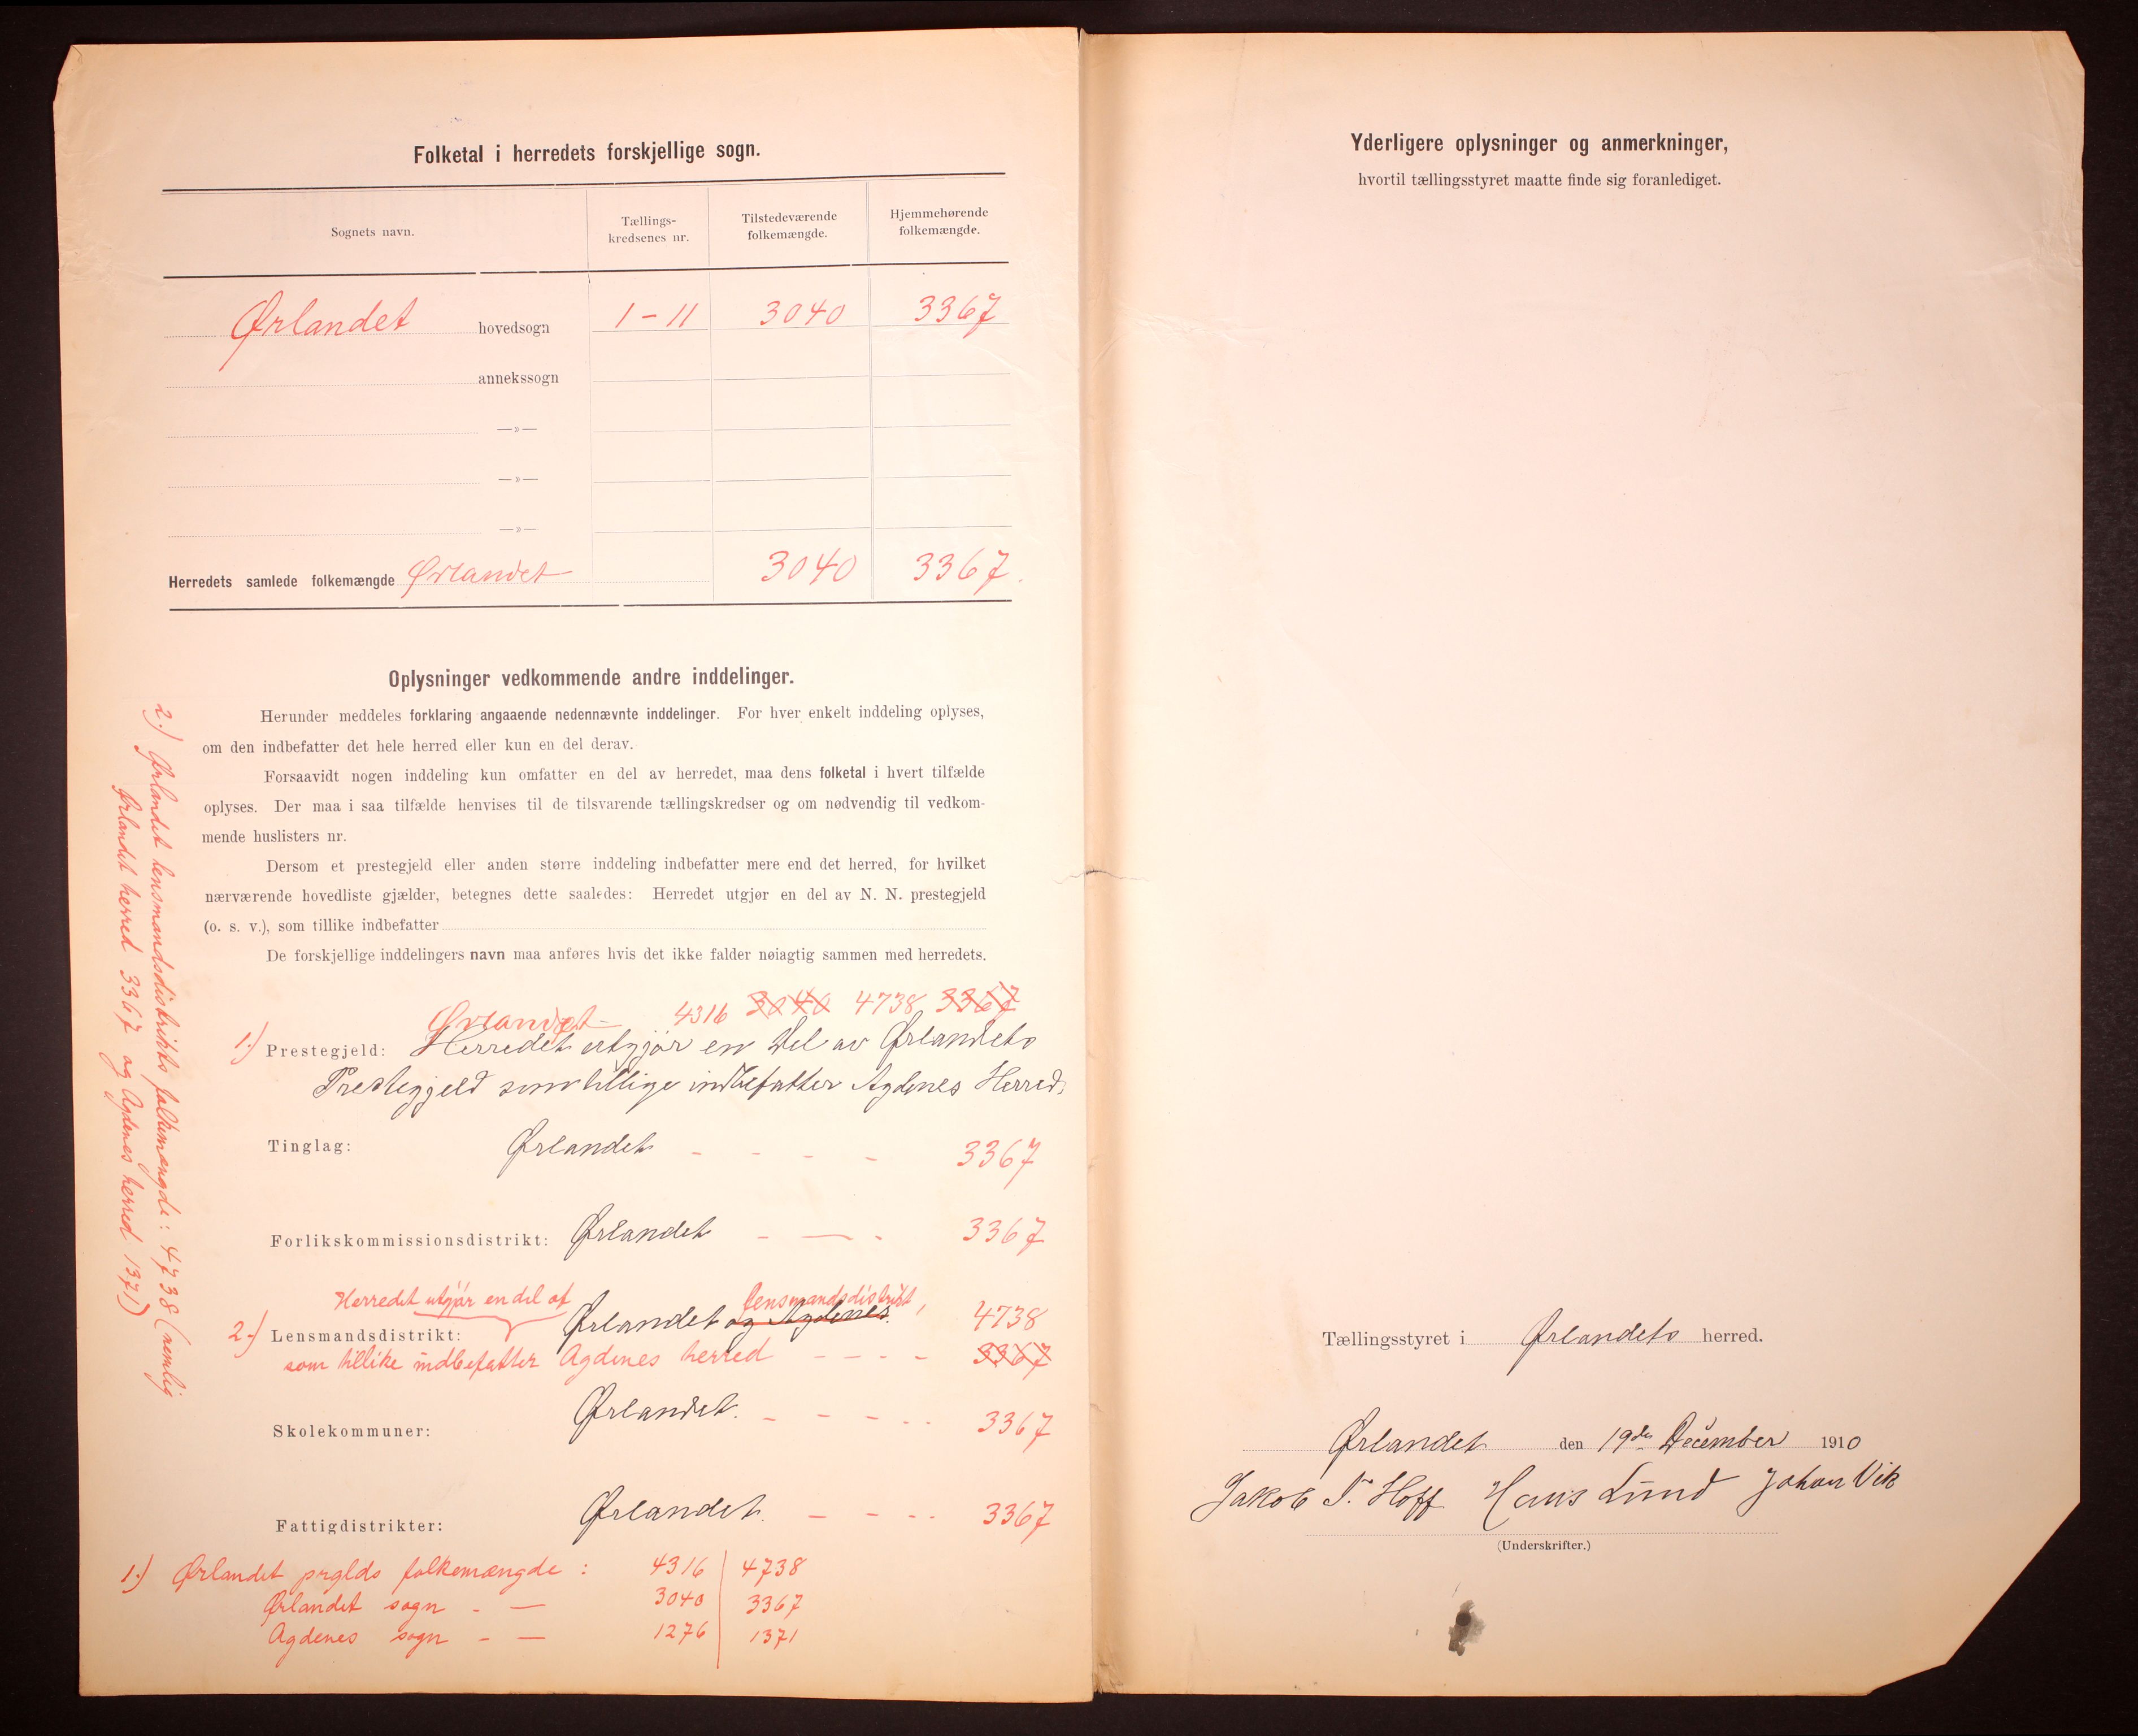 Folketal i herredets forskjellige sogn.
Sognets navn.
Tællings-
kredsenes nr.
Tilstedeværende
folkemængde.
Hjemmehørende
folkemængde.
Ørlandet hovedsogn 1-11 3040 3367
annekssogn
—»—
—»—
—»—
Herredets samlede folkemængde Ørlandet 3040 3367
Oplysninger vedkommende andre inddelinger.
Herunder meddeles forklaring angaaende nedennævnte inddelinger. For hver enkelt inddeling oplyses,
om den indbefatter det hele herred eller kun en del derav.
Forsaavidt nogen inddeling kun omfatter en del av herredet, maa dens folketal i hvert tilfælde
oplyses. Der maa i saa tilfælde henvises til de tilsvarende tællingskredser og om nødvendig til vedkom-
mende huslisters nr.
Dersom et prestegjeld eller anden større inddeling indbefatter mere end det herred, for hvilket
nærværende hovedliste gjælder, betegnes dette saaledes: Herredet utgjør en del av N. N. prestegjeld
(o. s. v.), som tillike indbefatter
De forskjellige inddelingers navn maa anføres hvis det ikke falder nøiagtig sammen med herredets.
Ørlandet 4316 3040 4738 3367
1.) Prestegjeld: Herredet utgjør en Del av Ørlandets
Prestegjeld som tillige indbefatter Agdenes Herred.
Tinglag: Ørlandet - - - - 3367
Forlikskommissionsdistrikt: Ørlandet - — - 3367
Herredet utgjør en del af lensmandsdistrikt,
2.) Lensmandsdistrikt: Ørlandet og Agdenes. 4738
som tillike indbefatter Agdenes herred - - - - 3367
Skolekommuner: Ørlandet. - - - - - 3367
Fattigdistrikter: Ørlandet. - - - - 3367
1.) Ørlandet prglds folkemængde : 4316 4738
Ørlandet sogn - — 3040 3367
Agdenes sogn - — 1276 1371
2.) Ørlandet lensmandsdistrikts folkemængde: 4738 (nemlig
Ørlandet herred 3367 og Agdenes herred 1371)
Yderligere oplysninger og anmerkninger,
hvortil tællingsstyret maatte finde sig foranlediget.
Tællingsstyret i Ørlandets herred.
Ørlandet den 19de December 1910
Jakob T. Hoff Hans Lund Johan Vik
(Underskrifter.)